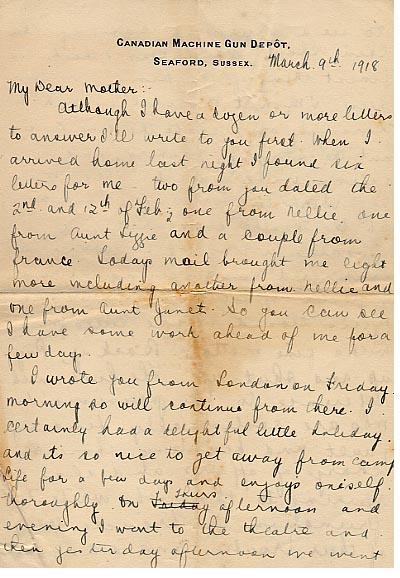 CANADIAN MACHINE GUN DEPÔT,
SEAFORD, SUSSEX. March 9th 1918
My Dear Mother:-
Although I have a dozen or more letters
to answer I'll write to you first. When I
arrived home last night I found six
letters for me - two from you dated the
2nd and 12th of Feb; one from Nellie, one
from Aunt Lizzie and a couple from
France. Todays mail brought me eight
more including another from Nellie and
one from Aunt Janet. So you can see
I have some work ahead of me for a
few days.
I wrote you from London on Friday
morning so will continue from there. I
certainly had a delightful little holiday.
and its so nice to get away from camp
life for a few days and enjoys oneself
thoroughly. On Friday Thurs afternoon and
evening I went to the theatre and
then yesterday afternoon we went